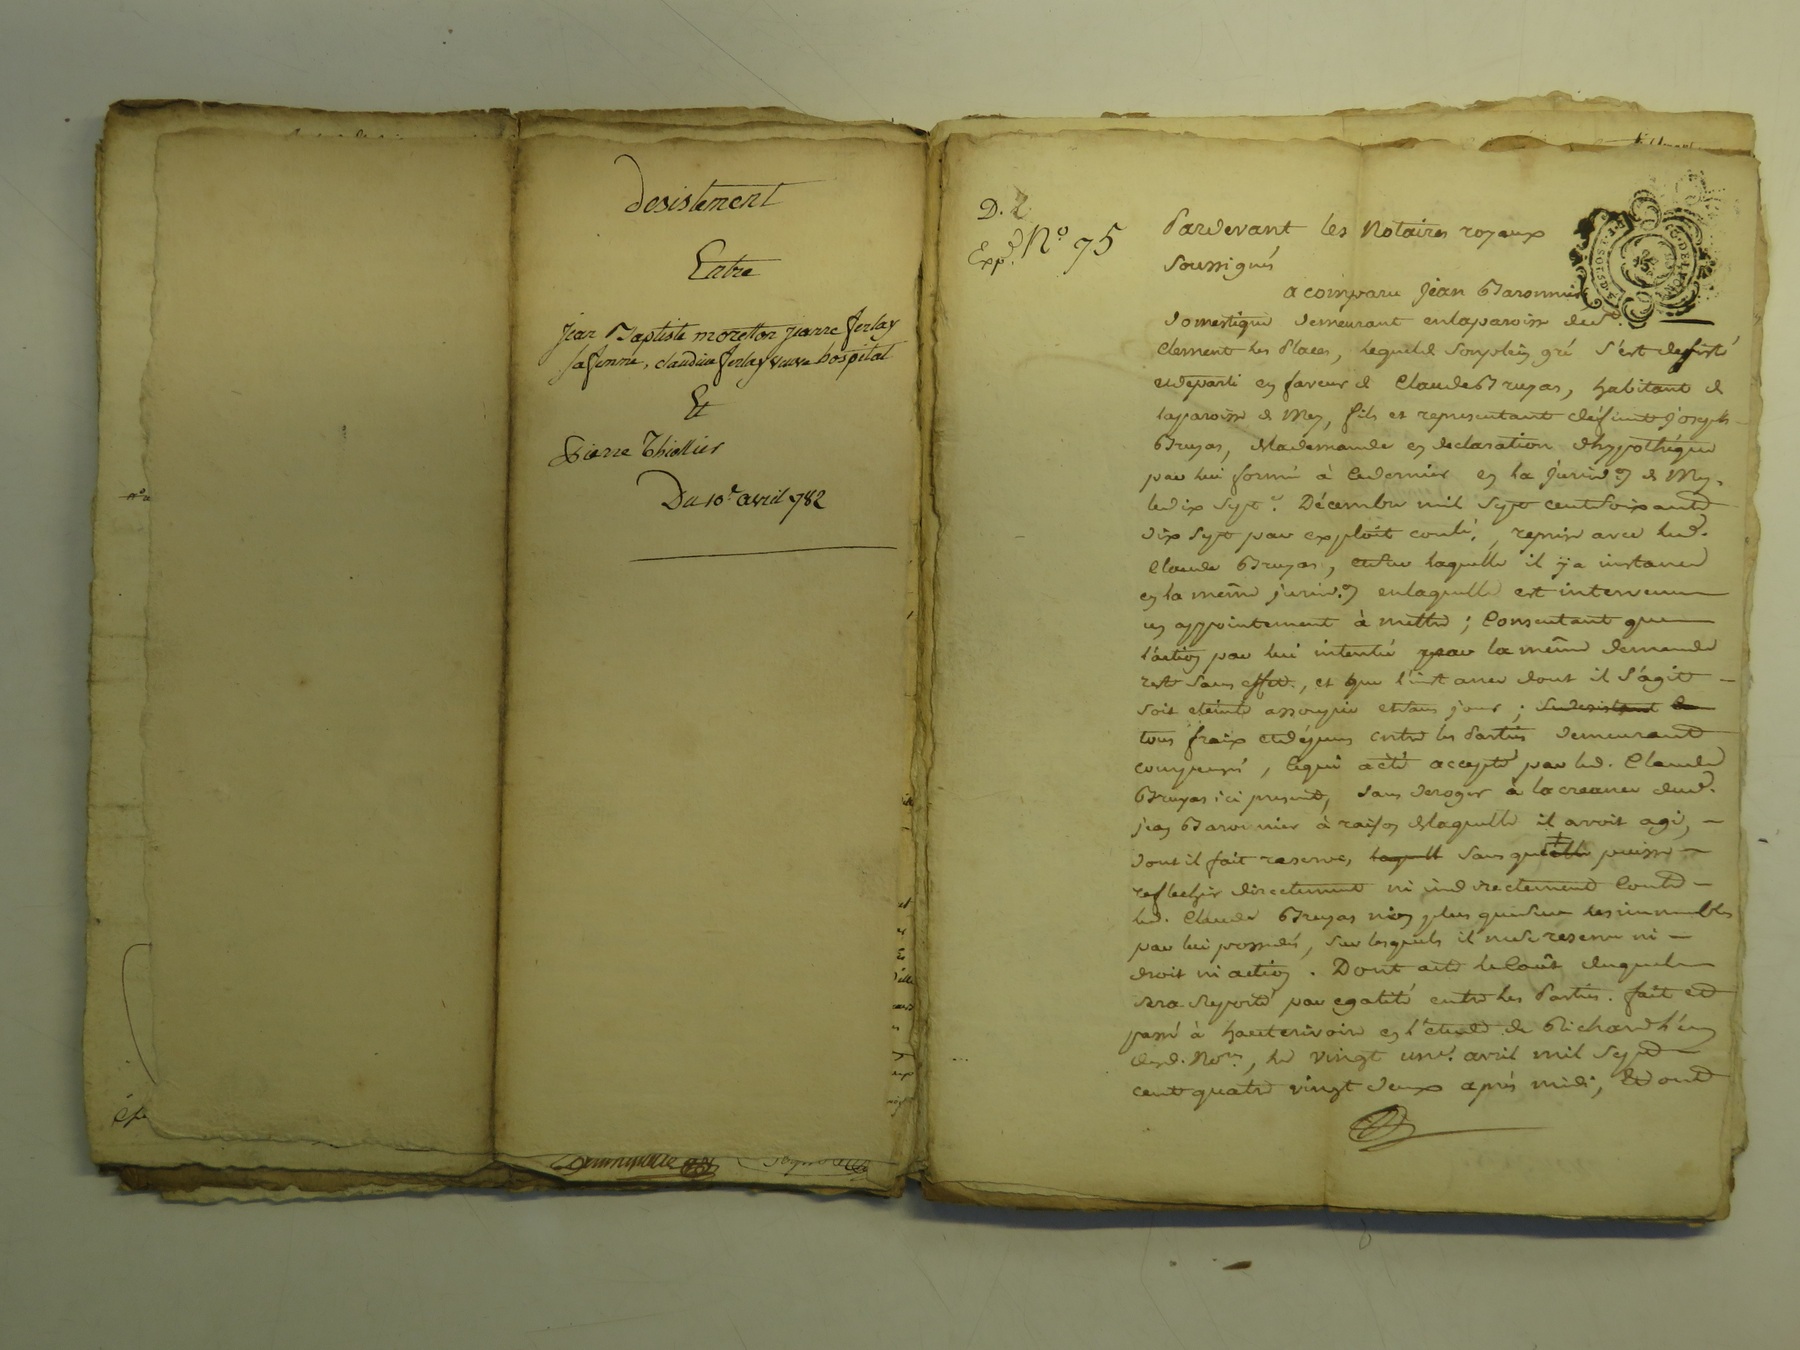 Desistement
Entre
Jean Baptiste moretton pierre ferlay
sa femme, claudine ferlay veuve hospital
Et
Pierre Thiollier
Du 10e avril 782
D. 2
Expd. No 75
Pardevant les Notaires royaux
Soussignés
a comparu Jean Baronnier
Domestique demeurant en la paroisse de St.
Clement les Places, lequel de son plein gré s'est desisté
et departi en faveur de Claude Bruyas, habitant de
la paroisse de Mey, fils et representant defunt Joseph
Bruyas, de la demande en declaration d'hypothéque
par lui formé à ce dernier en la Jurid.on de Mey,
le dix sept.e Décembre mil sept cent soixante
dix sept par exploit controlé, reprise avec led.
Claude Bruyas, et sur laquelle il y a instance
en la même jurid.on en laquelle est intervenu
un appointement à mettre ; Consentant que
l'action par lui intentée par la même demande
reste sans effet, et que l'instance dont il s'agit
soit eteinte assoupie et sans jour ;
tous fraix et dépens entre les Parties demeurant
compensés, ce qui a été accepté par led. Claude
Bruyas ici present, sans deroger à la creance dud.
jean Baronnier à raison de laquelle il avoit agi,
dont il fait reserve, laquelle sans qu'elle puisse
reflechir directement ni indirectement Contre
led. Claude Bruyas non plus que sur les immeubles
par lui possedés, sur lesquels il ne se reserve ni
droit ni action. Dont acte le Coût duquel
sera suporté par egalité entre les Parties. fait et
passé à hauterivoire en l'étude de Richard l'un
desd. Nores, le vingt un.e avril mil sept
cent quatre vingt deux après midi, Et ont